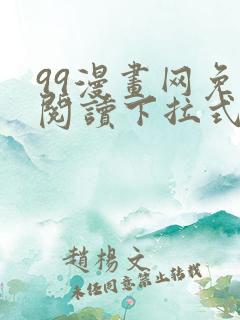 99漫畫网免
閱讀下拉式
趙楊文
未经同意禁止转载